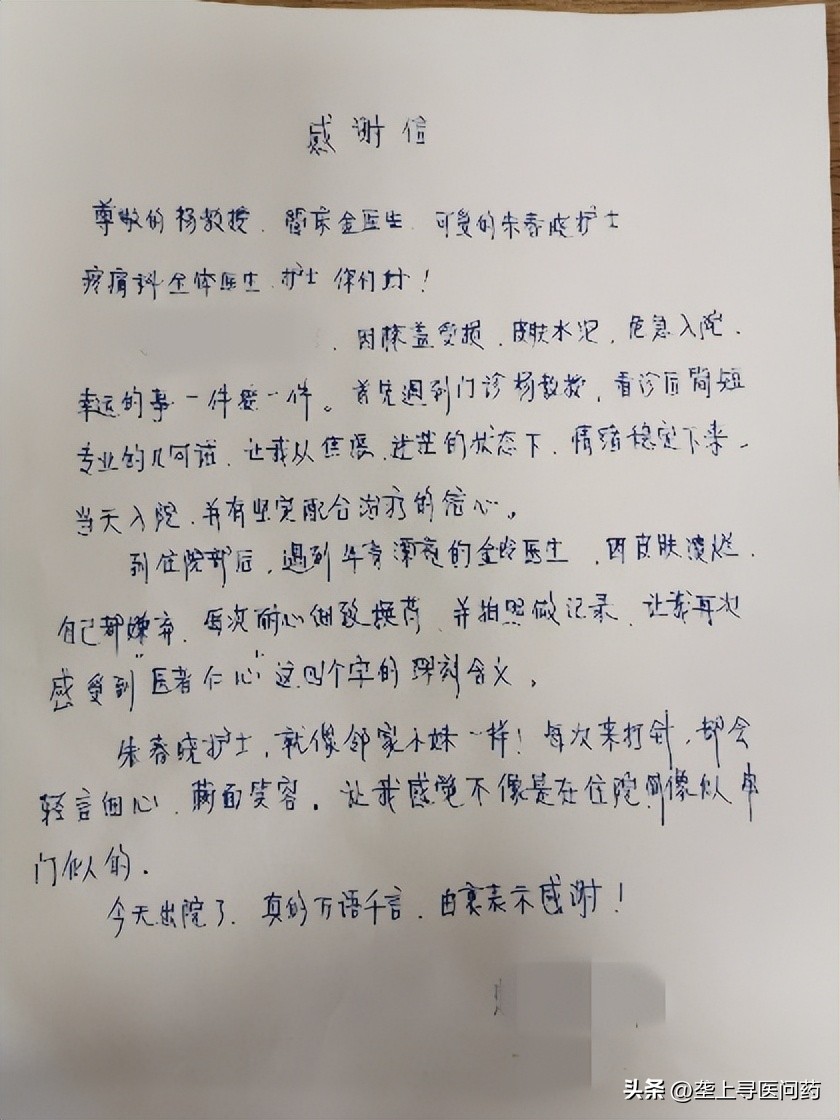 感谢信
尊敬的杨教授、金医生、可爱的朱春晓护士
疼痛科全体医生、护士你们好！
因膝盖受损、皮肤水泡，危急入院、
幸运的事一件接一件。首先遇到门诊杨教授，看诊后简短
专业的几句话，让我从焦虑、迷茫的状态下，情绪稳定下来、
当天入院，并有坚定配合治疗的信心。
到住院部后，遇到年青漂亮的金医生，因皮肤溃烂、
自己都嫌弃，每次耐心细致换药，并拍照做记录，让我再次
感受到“医者仁心”这四个字的深刻含义。
朱春晓护士，就像邻家小妹一样！每次来打针，都会
轻言细心、满面笑容。让我感觉不像是在住院倒像似串
门似的.
今天出院了，真的万语千言，由衷表示感谢！
头条 @垄上寻医问药